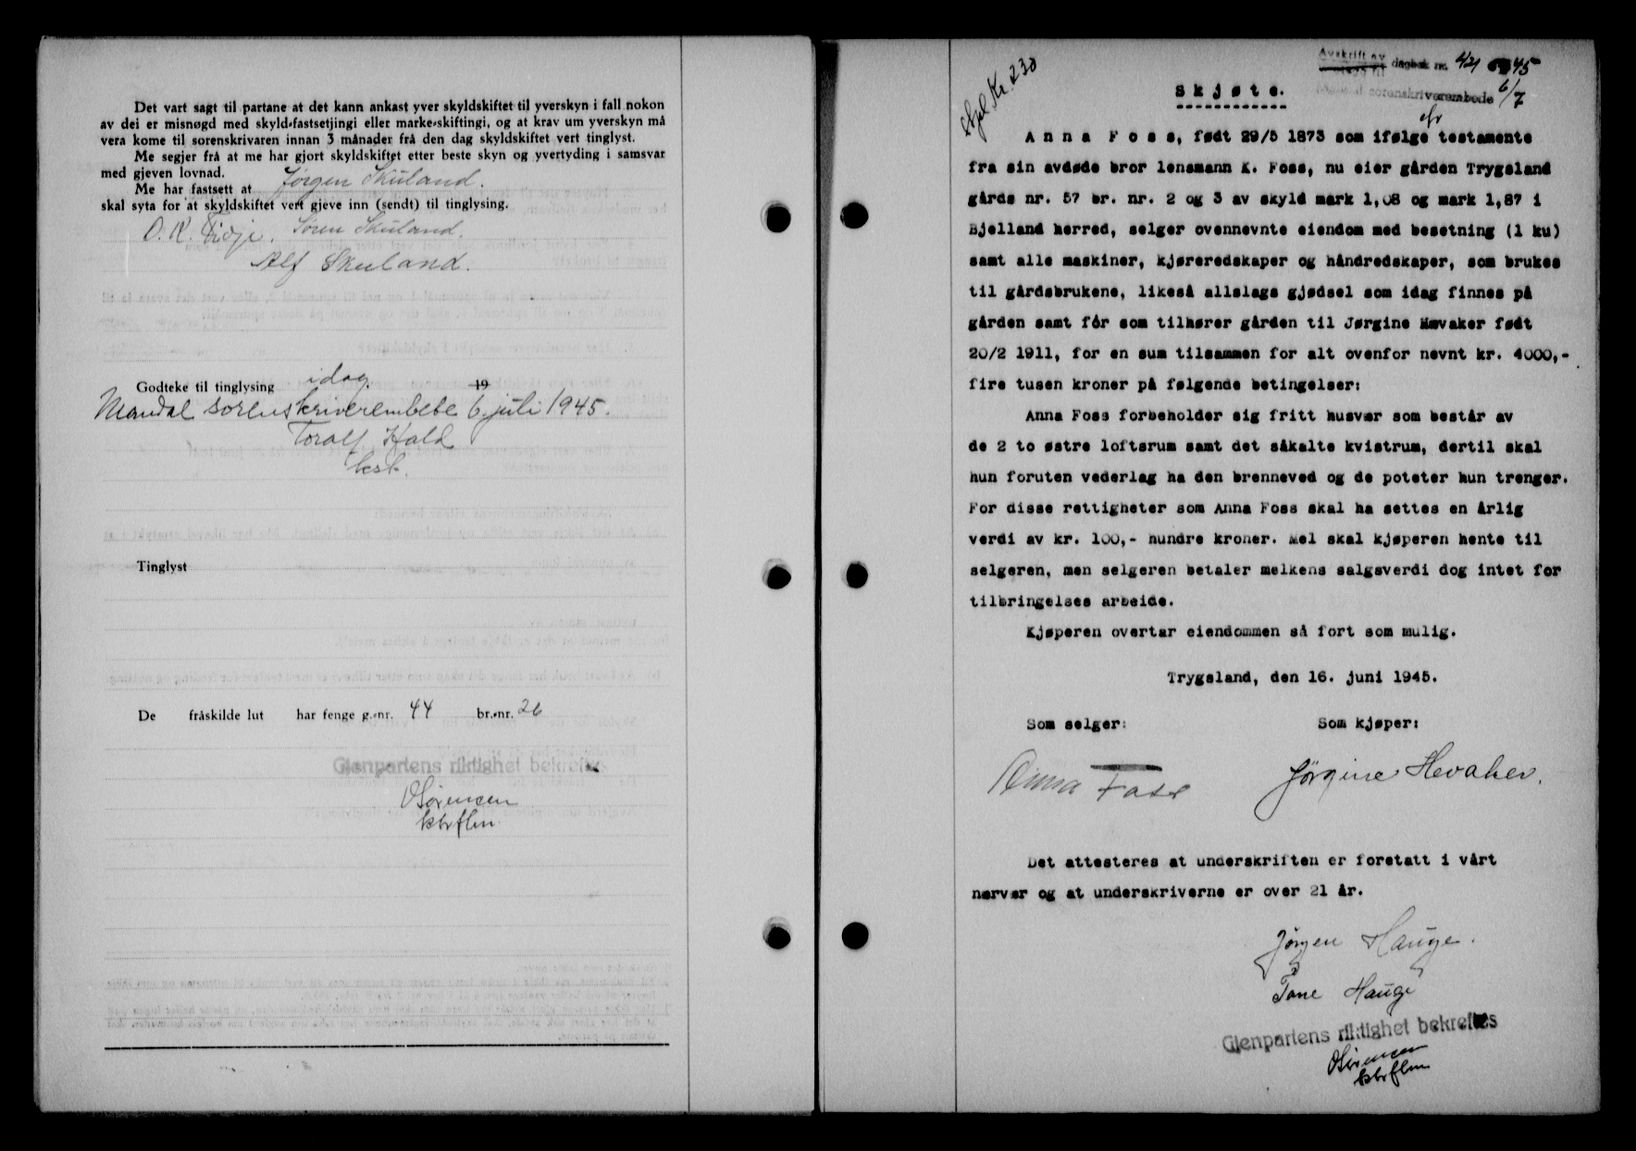 Det vart sagt til partane at det kann ankast yver skyldskiftet til yverskyn i fall nokon
av dei er misnøgd med skyld-fastsetjingi eller marke-skiftingi, og at krav um yverskyn må
vera kome til sorenskrivaren innan 3 månader frå den dag skyldskiftet vert tinglyst.
Me segjer frå at me har gjort skyldskiftet etter beste skyn og yvertyding i samsvar
med gjeven lovnad.
Me har fastsett at Jørgen Skuland.
skal syta for at skyldskiftet vert gjeve inn (sendt) til tinglysing.
O. K. Tidje. Søren Skuland.
Alf Skuland.
Godteke til tinglysing idag 19
Mandal sorenskriverembete 6. juli 1945.
Toralf Hald
Tinglyst
De fråskilde lut har fenge g.-nr. 44 br.-nr. 26
Gjenpartens riktighet bekreftes
OSørensen
ktrflm
Avskrift av dagbok nr. 421 1945
sorenskriverembede 6/7
Gjel. Kr. 230
Skjøte.
Anna Foss, født 29/5 1873 som ifølge testamente
fra sin avdøde bror lensmann K. Foss, nu eier gården Trygsland
gårds nr. 57 br. nr. 2 og 3 av skyld mark 1,08 og mark 1,87 i
Bjelland herred, selger ovennevnte eiendom med besetning (1 ku)
samt alle maskiner, kjøreredskaper og håndredskaper, som brukes
til gårdsbrukene, likeså allslags gjødsel som idag finnes på
gården samt fór som tilhører gården til Jørgine Høvaker født
20/2 1911, for en sum tilsammen for alt ovenfor nevnt kr. 4000,-
fire tusen kroner på følgende betingelser:
Anna Foss forbeholder sig fritt husvær som består av
de 2 to østre loftsrum samt det såkalte kvistrum, dertil skal
hun foruten vederlag ha den brenneved og de poteter hun trenger.
For disse rettigheter som Anna Foss skal ha settes en årlig
verdi av kr. 100,- hundre kroner. Mel skal kjøperen hente til
selgeren, men selgeren betaler melkens salgsverdi dog intet for
tilbringelses arbeide.
Kjøperen overtar eiendommen så fort som mulig.
Trygsland, den 16. juni 1945.
Som selger: Som kjøper:
Anna Foss Jørgine Hevaker.
Det attesteres at underskriften er foretatt i vårt
nærvær og at underskriverne er over 21 år.
Jørgen Hauge.
Tone Hauge
Gjenpartens riktighet bekreftes
OSørensen
ktrflm